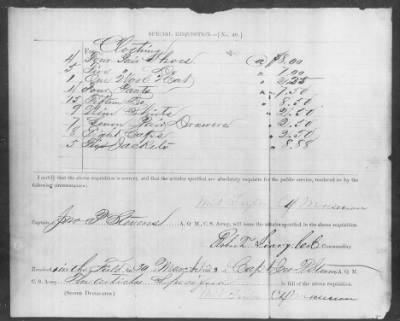 SPECIAL REQUISITION—[No. 40.]
For Clothing
4 Four Pair Shoes @ $8.00
5 Five " Do " 7.00
1 One Wool Hat " 2.25
4 Four Pants " 7.50
15 Fifteen Do " 8.50
9 Nine Shirts " 2.50
7 Seven Pair Drawers " 2.50
8 Eight Caps " 2.50
5 Jackets " 8.88
I certify that the above requisition is correct, and that the articles specified are absolutely requisite for the public service, rendered so by the
following circumstances:
Captain Jno P Stevens A. Q. M., C. S. Army, will issue the articles specified in the above requisition.
Commanding
Received in the Field 29 March of Capt Jno P A. Q. M.
C. S. Army, The articles Specified in full of the above requisition.
(SIGNED DUPLICATES.)